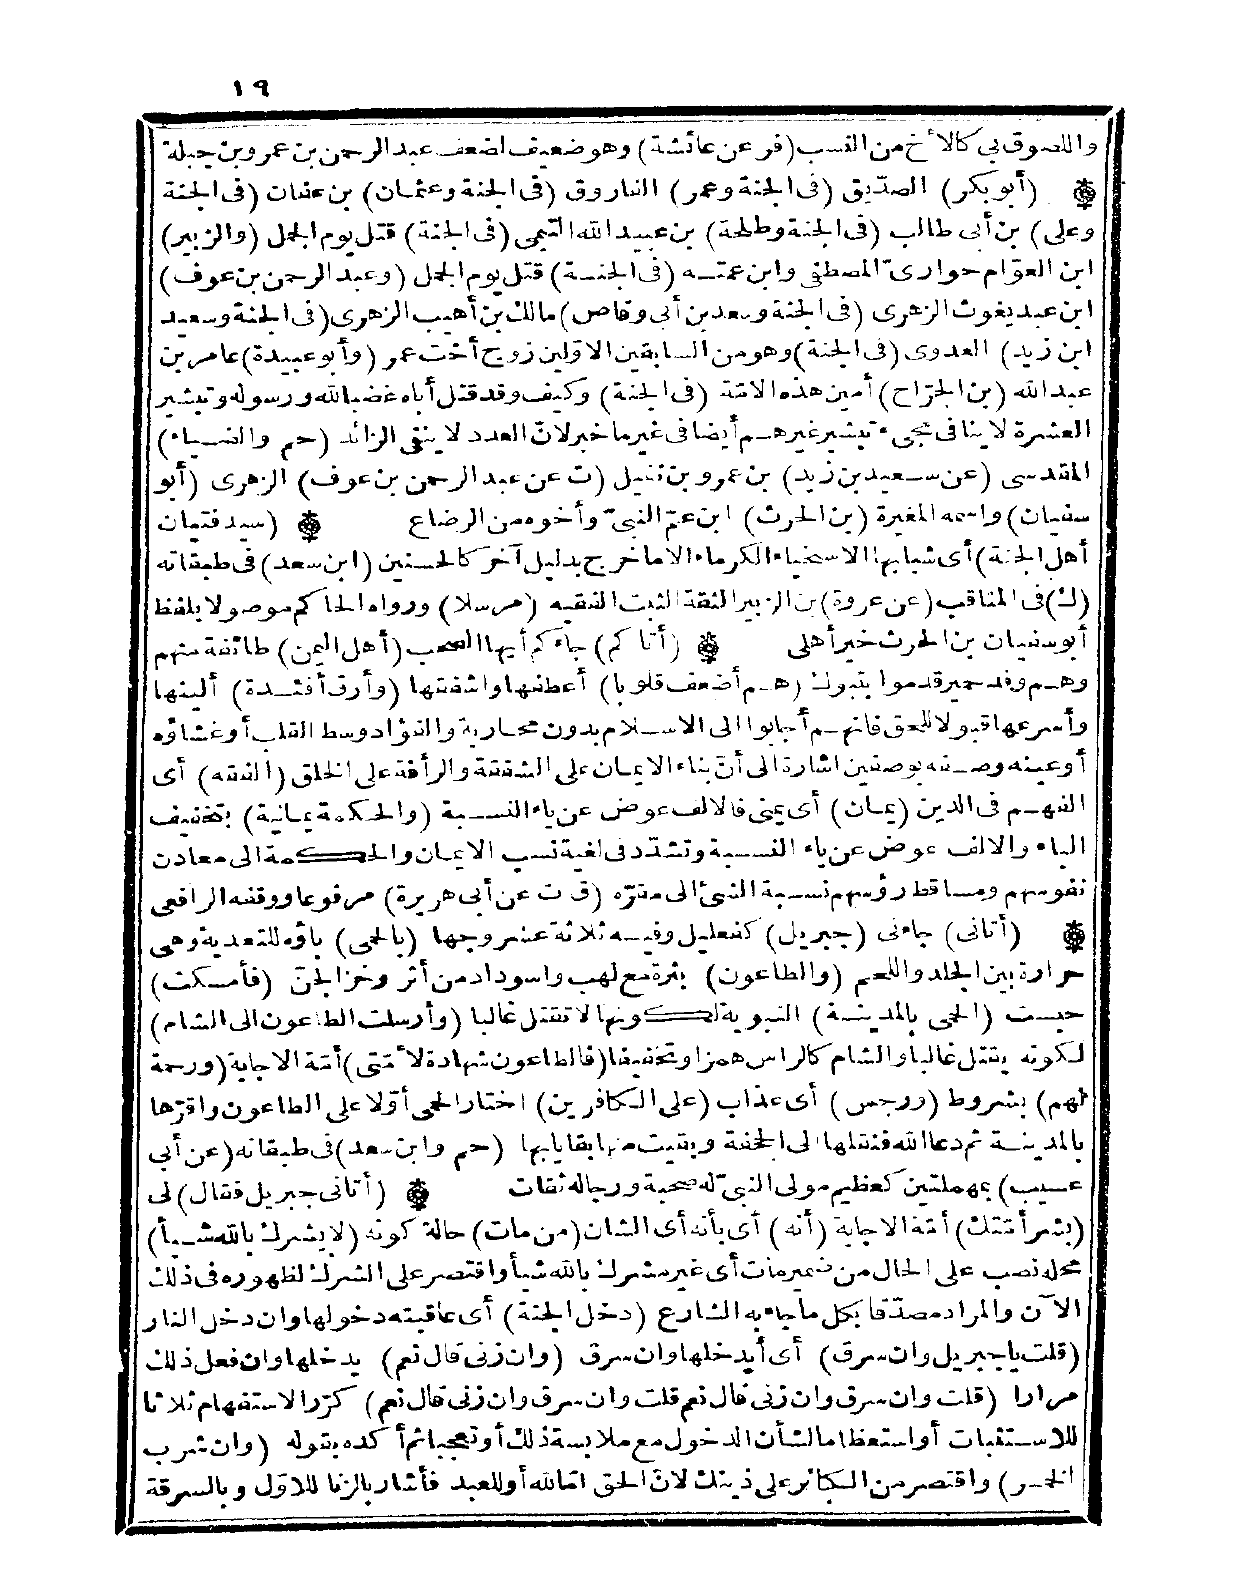 ١٩
واللصوق بي كالأخ من النسب (فر عن عائشة) وهو ضعيف لضعف عبد الرحمن بن عمرو بن جبلة
(أبو بكر) الصدّيق (فى الجنة وعمر) الفاروق (فى الجنة وعثمان) بن عفان (فى الجنة
وعلى) بن أبى طالب (فى الجنة وطلحة) بن عبيد الله التيمى (فى الجنة) قتل يوم الجمل (والزبير)
ابن العوّام حوارىّ المصطفى وابن عمته (فى الجنة) قتل يوم الجمل (وعبد الرحمن بن عوف)
ابن عبد يغوث الزهرى (فى الجنة وسعد بن أبى وقاص) مالك بن أهيب الزهرى (فى الجنة وسعيد
ابن زيد) العدوى (فى الجنة) وهو من السابقين الاوّلين زوج أخت عمر (وأبو عبيدة) عامر بن
عبد الله (بن الجرّاح) أمين هذه الامّة (فى الجنة) وكيف وقد قتل أباه غضبا لله ورسوله وتبشير
العشرة لا ينافى مجىء تبشير غيرهم أيضا فى غير ما خبر لانّ العدد لا ينفى الزائد (حم والضياء)
المقدسى (عن سعيد بن زيد) بن عمرو بن نفيل (ت عن عبد الرحمن بن عوف) الزهرى (أبو
سفيان) واسمه المغيرة (بن الحرث) ابن عمّ النبىّ وأخوه من الرضاع (سيد فتيان
أهل الجنة) أى شبابها الاسخياء الكرماء الا ما خرج بدليل آخر كالحسنين (ابن سعد) فى طبقاته
(ك) فى المناقب (عن عروة) بن الزبير الثقة الثبت الفقيه (مرسلا) ورواه الحاكم موصولا بلفظ
أبو سفيان بن الحرث خير أهلى (أتاكم) جاءكم أيها الصحب (أهل اليمن) طائفة منهم
وهم وفد حمير قدموا بتبوك (هم أضعف قلوبا) أعطفها وأشفقها (وأرق أفئدة) ألينها
وأسرعها قبولا للحق فانهم أجابوا الى الاسلام بدون محاربة والفؤاد وسط القلب أو غشاؤه
أو عينه وصفه بوصفين اشارة الى أنّ بناء الايمان على الشفقة والرأفة على الخلق (الفقه) أى
الفهم فى الدين (يمان) أى يمنى فالالف عوض عن ياء النسبة (والحكمة يمانية) بتخفيف
الياء والالف عوض عن ياء النسبة وتشدّد فى لغية نسب الايمان والحكمة الى معادن
نفوسهم ومساقط رؤسهم نسبة الشئ الى مقرّه (ق ت عن أبى هريرة) مرفوعا ووقفه الرافعى
(أتانى) جاءنى (جبريل) كفعليل وفيه ثلاثة عشر وجها (بالحمى) باؤه للتعدية وهى
حرارة بين الجلد واللحم (والطاعون) بثرة مع لهب واسوداد من أثر وخز الجنّ (فأمسكت)
حبست (الحمى بالمدينة) النبوية لكونها لا تقتل غالبا (وأرسلت الطاعون الى الشام)
لكونه يقتل غالبا والشام كالراس همزا وتخفيفا (فالطاعون شهادة لأمّتى) أمّة الاجابة (ورحمة
لهم) بشروط (ورجس) أى عذاب (على الكافرين) اختار الحمى أوّلا على الطاعون وأقرّها
بالمدينة ثم دعا الله فنقلها الى الجحفة وبقيت منها بقايا بها (حم وابن سعد) فى طبقاته (عن أبى
عسيب) بمهملتين كعظيم مولى النبىّ له صحبة ورجاله ثقات (أتانى جبريل فقال) لى
(بشر أمّتك) أمّة الاجابة (أنه) أى بأنه أى الشان (من مات) حالة كونه (لا يشرك بالله شيأ)
محله نصب على الحال من ضمير مات أى غير مشرك بالله شيأ واقتصر على الشرك لظهوره فى ذلك
الآن والمراد مصدّقا بكل ما جاء به الشارع (دخل الجنة) أى عاقبته دخولها وان دخل النار
(قلت يا جبريل وان سرق) أى أيدخلها وان سرق (وان زنى قال نعم) يدخلها وان فعل ذلك
مرارا (قلت وان سرق وان زنى قال نعم قلت وان سرق وان زنى قال نعم) كرّر الاستفهام ثلاثا
للاستثبات أو استعظاما لشأن الدخول مع ملابسة ذلك أو تعجبا ثم أكده بقوله (وان شرب
الخمر) واقتصر من الكبائر على ذينك لانّ الحق امّا لله أو للعبد فأشار بالزنا للاوّل وبالسرقة